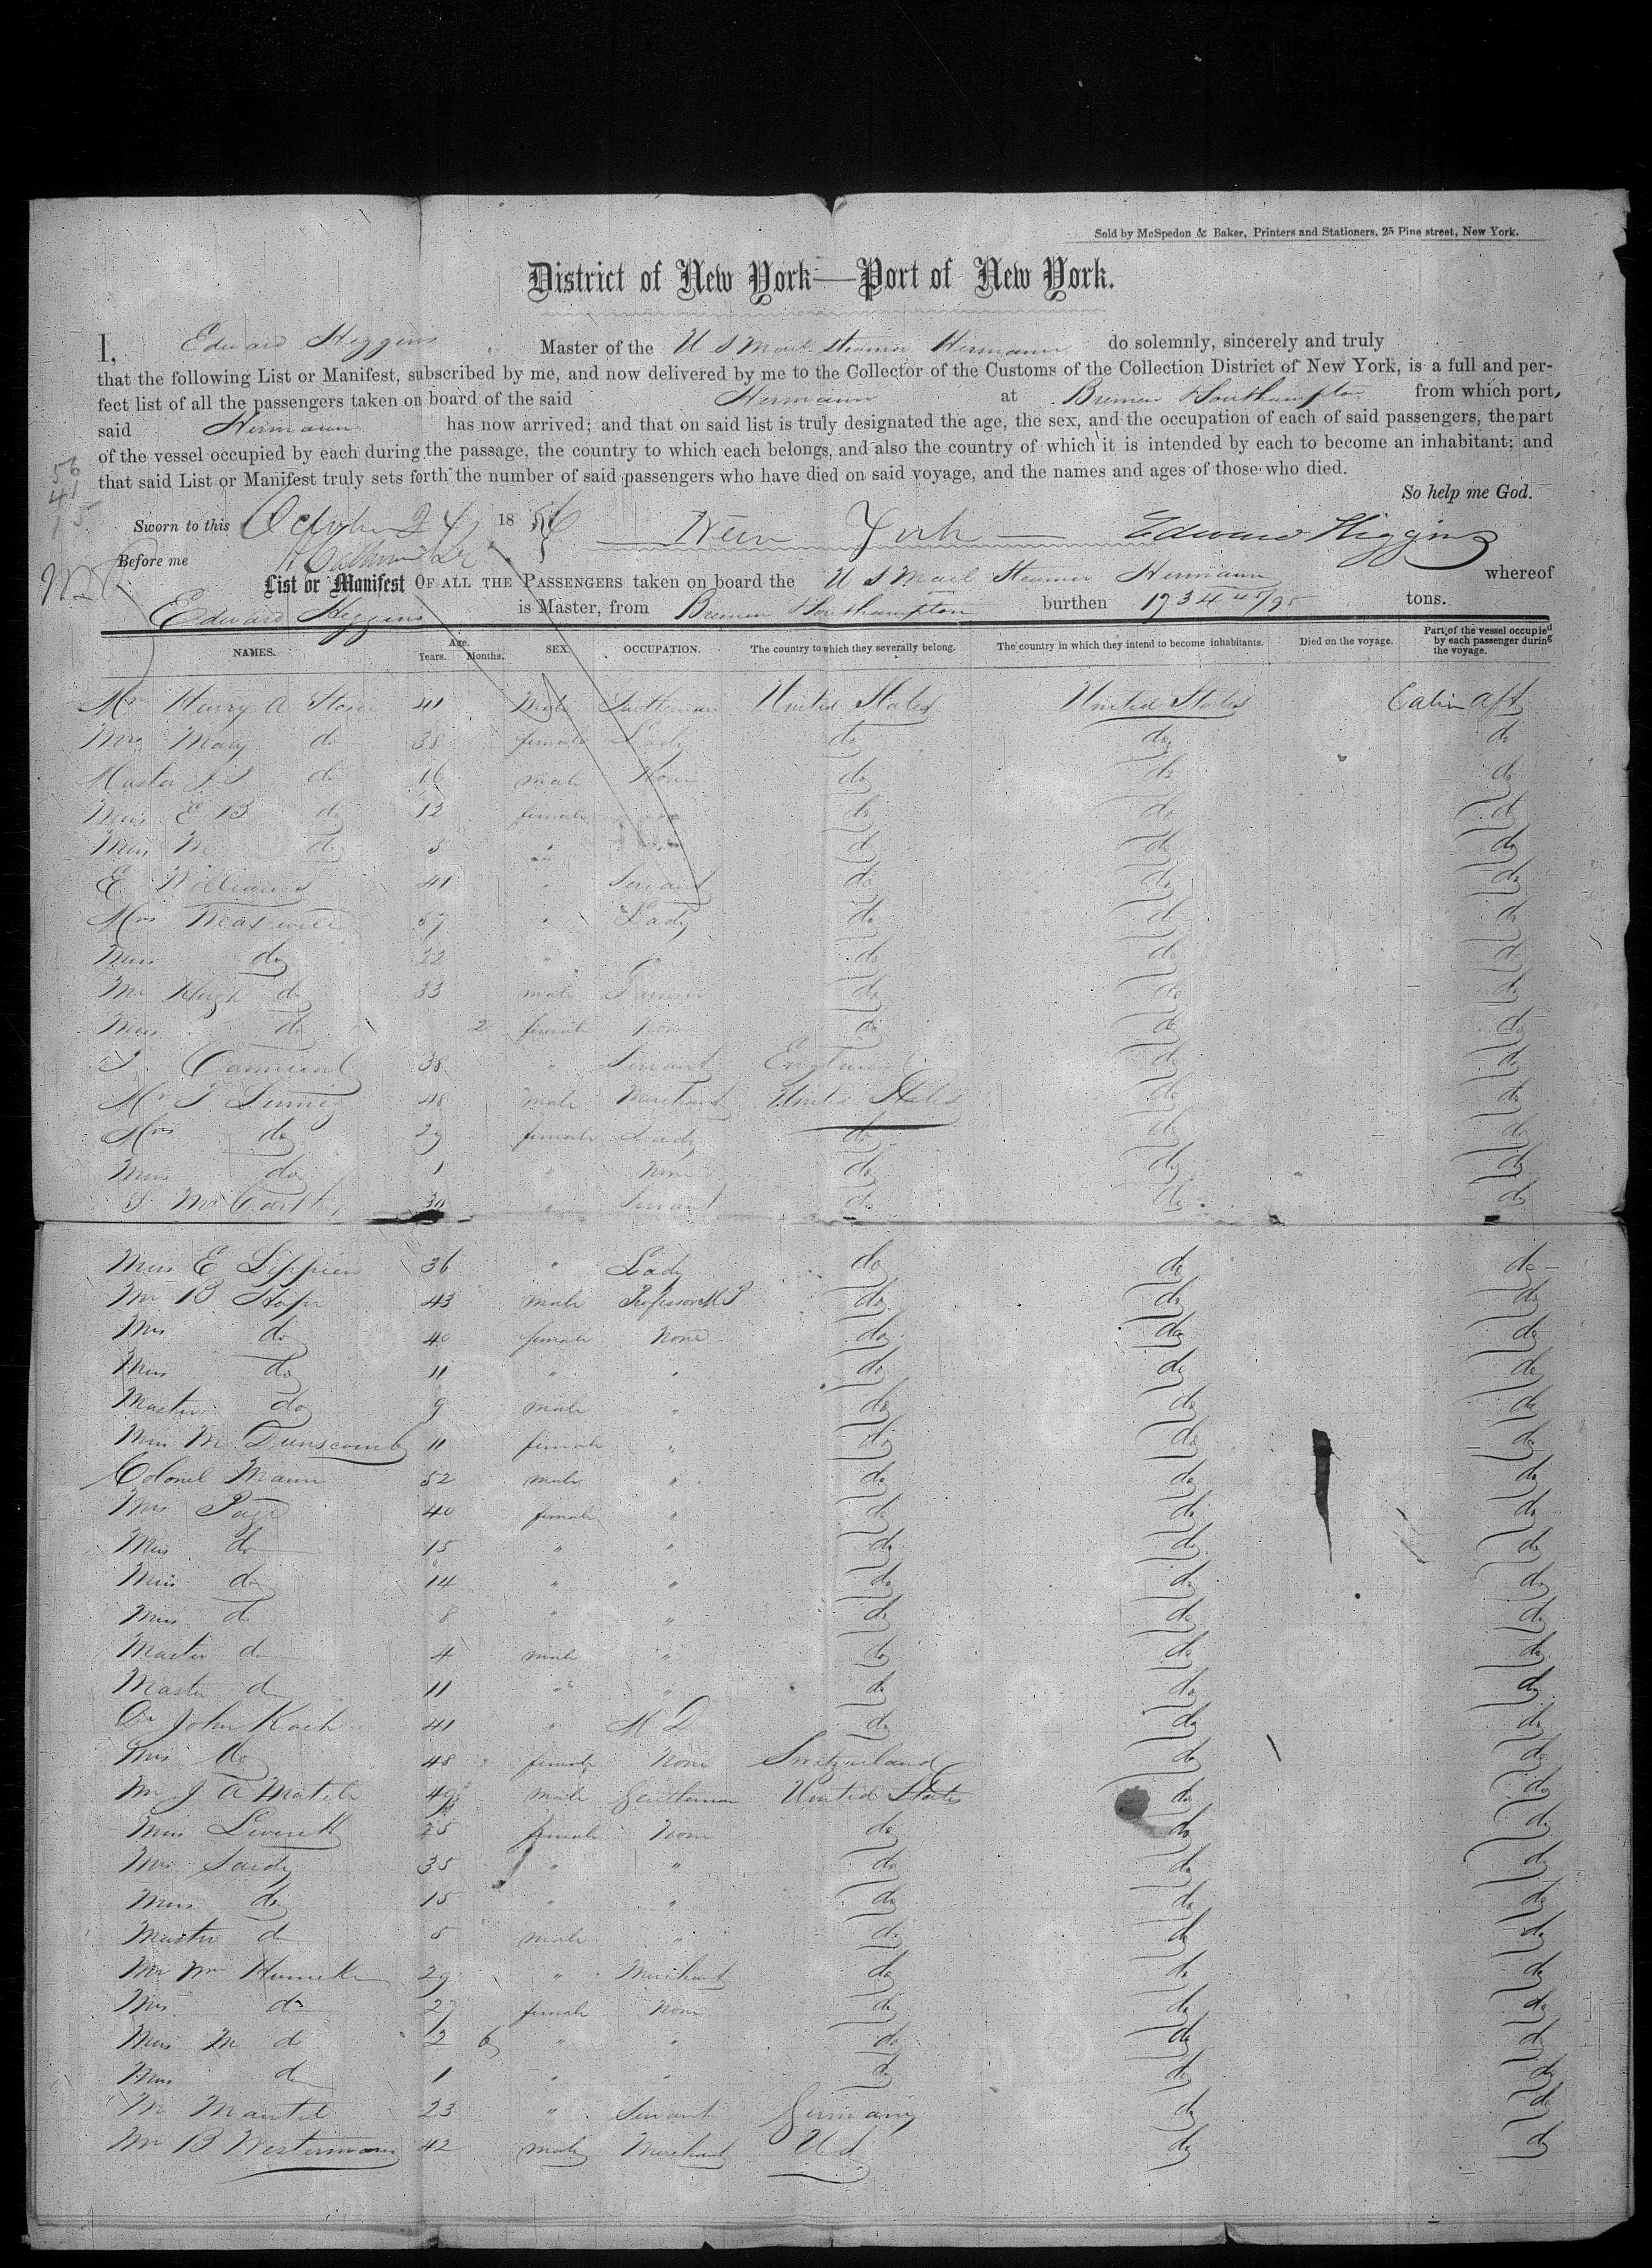 Sold by McSpedon & Baker, Printers and Stationers. 25 Pine street, New York.
District of New York—Port of New York.
I, Edward Higgins Master of the U S Mail Steamer Hermann do solemnly, sincerely and truly
that the following List or Manifest, subscribed by me, and now delivered by me to the Collector of the Customs of the Collection District of New York, is a full and per-
fect list of all the passengers taken on board of the said Hermann at Bremen & Southampton from which port,
said Hermann has now arrived; and that on said list is truly designated the age, the sex, and the occupation of each of said passengers, the part
of the vessel occupied by each during the passage, the country to which each belongs, and also the country of which it is intended by each to become an inhabitant; and
that said List or Manifest truly sets forth the number of said passengers who have died on said voyage, and the names and ages of those who died.
So help me God.
56
41
15
Sworn to this October 24 1856 New York Edward Higgins
Before me
List or Manifest OF ALL THE PASSENGERS taken on board the U S Mail Steamer Hermann whereof
Edward Higgins is Master, from Bremen & Southampton burthen 1734 45/95 tons.
NAMES. Age. Years. Months. SEX. OCCUPATION. The country to which they severally belong. The country in which they intend to become inhabitants. Died on the voyage. Part of the vessel occupied by each passenger during the voyage.
Mr Henry A 41 Male Gentleman United States United States Cabin aft
Mrs Mary do 38 female Lady do do do
Master J S do 16 male None do do do
Miss E B do 12 female do do do
Miss M do 8 " do do do
E. Williams 41 " Servant do do do
Mrs 57 " Lady do do do
Miss do 22 " " do do do
Mr Hugh do 33 male do do do
Miss do 2 female None do do do
38 " Servant England do do
Mr J Lennig 48 male Merchant United States do do
Mrs do 29 female Lady do do do
Miss do 1 " None do do do
S McCarthy 30 " Servant do do do
Miss E 36 " Lady do do do
Mr B 43 male Professor do do do
Mrs do 40 female None do do do
Miss do 11 " " do do do
Master do 9 male " do do do
Miss M Dunscomb 11 female " do do do
Colonel Mann 52 male " do do do
Mrs Page 40 female " do do do
Miss do 15 " " do do do
Miss do 14 " " do do do
Miss do 8 " " do do do
Master do 4 male " do do do
Master do 11 " " do do do
Dr John Koch 41 " M D do do do
Mrs do 48 female None Switzerland do do
Mr J A Matile 49 male Gentleman United States do do
Miss Leverett female None do do do
Mrs 35 " " do do do
Miss do 15 " " do do do
Master do 5 male " do do do
Mr Wm 29 " Merchant do do do
Mrs do 27 female None do do do
Miss M do 2 6 " " do do do
Miss do 1 " " do do do
M Mantel 23 " Servant Germany do do
Mr B Westermann 42 male Merchant U S do do